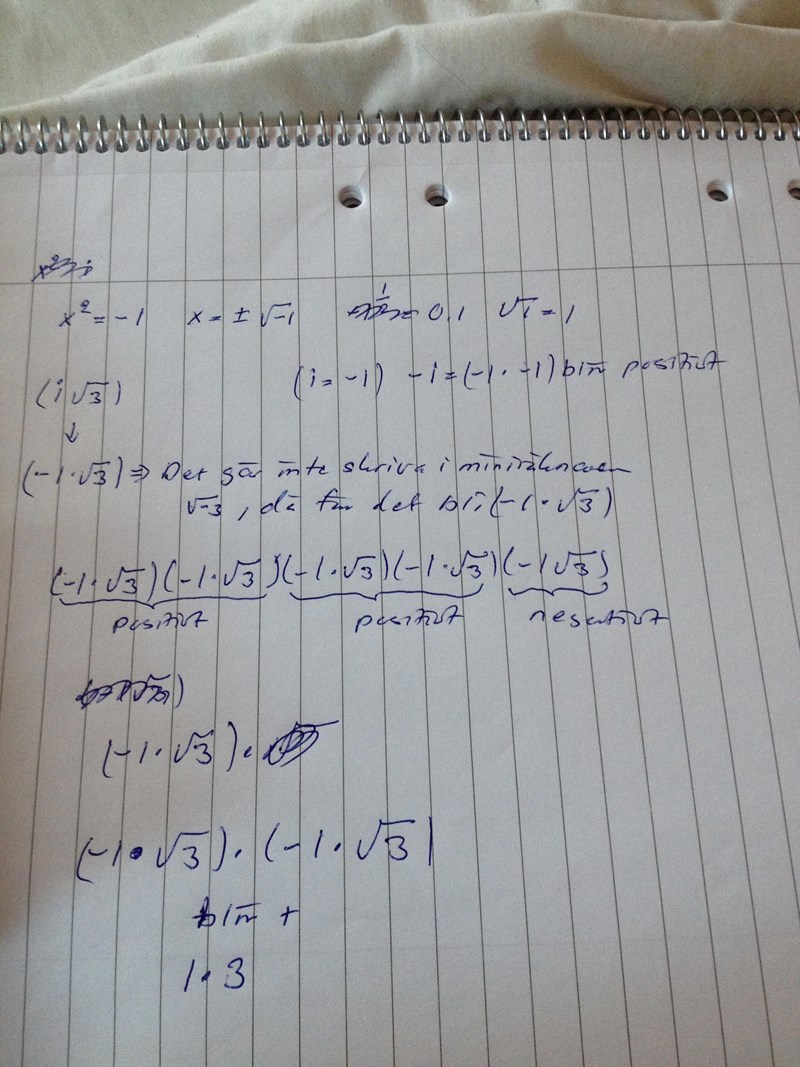 x² = -1   x = ± √-1   = 0,1   √1 = 1
(i √3)   (i = -1)   -i = (-1 · -1) blir positivt
↓
(-1 · √3) ⇒ Det går inte skriva i miniräknaren
√-3, då får det bli (-1 · √3)
(-1 · √3)(-1 · √3)(-1 · √3)(-1 · √3)(-1√3)
positivt   positivt   negativt
(-1 · √3) ·
(-1 · √3) · (-1 · √3)
blir +
1 · 3